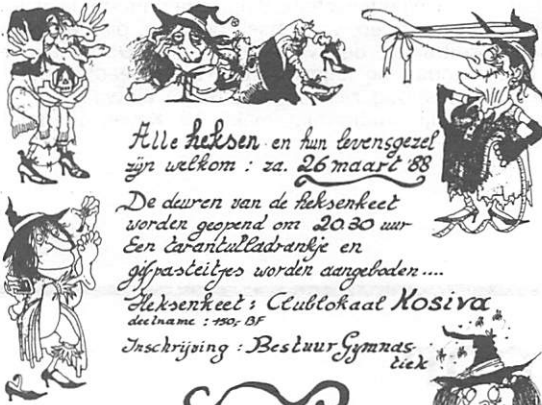 Alle heksen en hun levensgezel
zijn welkom : za. 26 maart '88
De deuren van de heksenkeet
worden geopend om 20.30 uur
Een tarantulladrankje en
gifpasteitjes worden aangeboden....
Heksenkeet : Clublokaal Kosiva
deelname : 150,- BF
Inschrijving : Bestuur Gymnas-
tiek